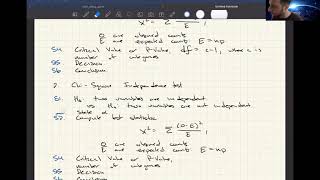 X² = Σ (O-E)²/E ,
O are observed counts
E are expected counts E = np
S4 Critical Value or P-Value, df = c-1, where c is
number of categories
S5 Decision
S6 Conclusion
2. Chi-Square Independence test
S1 H₀: two variables are independent
vs Hₐ: two variables are not independent
S2 State α
S3 Compute test statistic
X² = Σ (O-E)²/E ,
O are observed counts
E are expected counts E = np
S4 Critical Value or P-Value,
number of categories
S5 Decision
S6 Conclusion